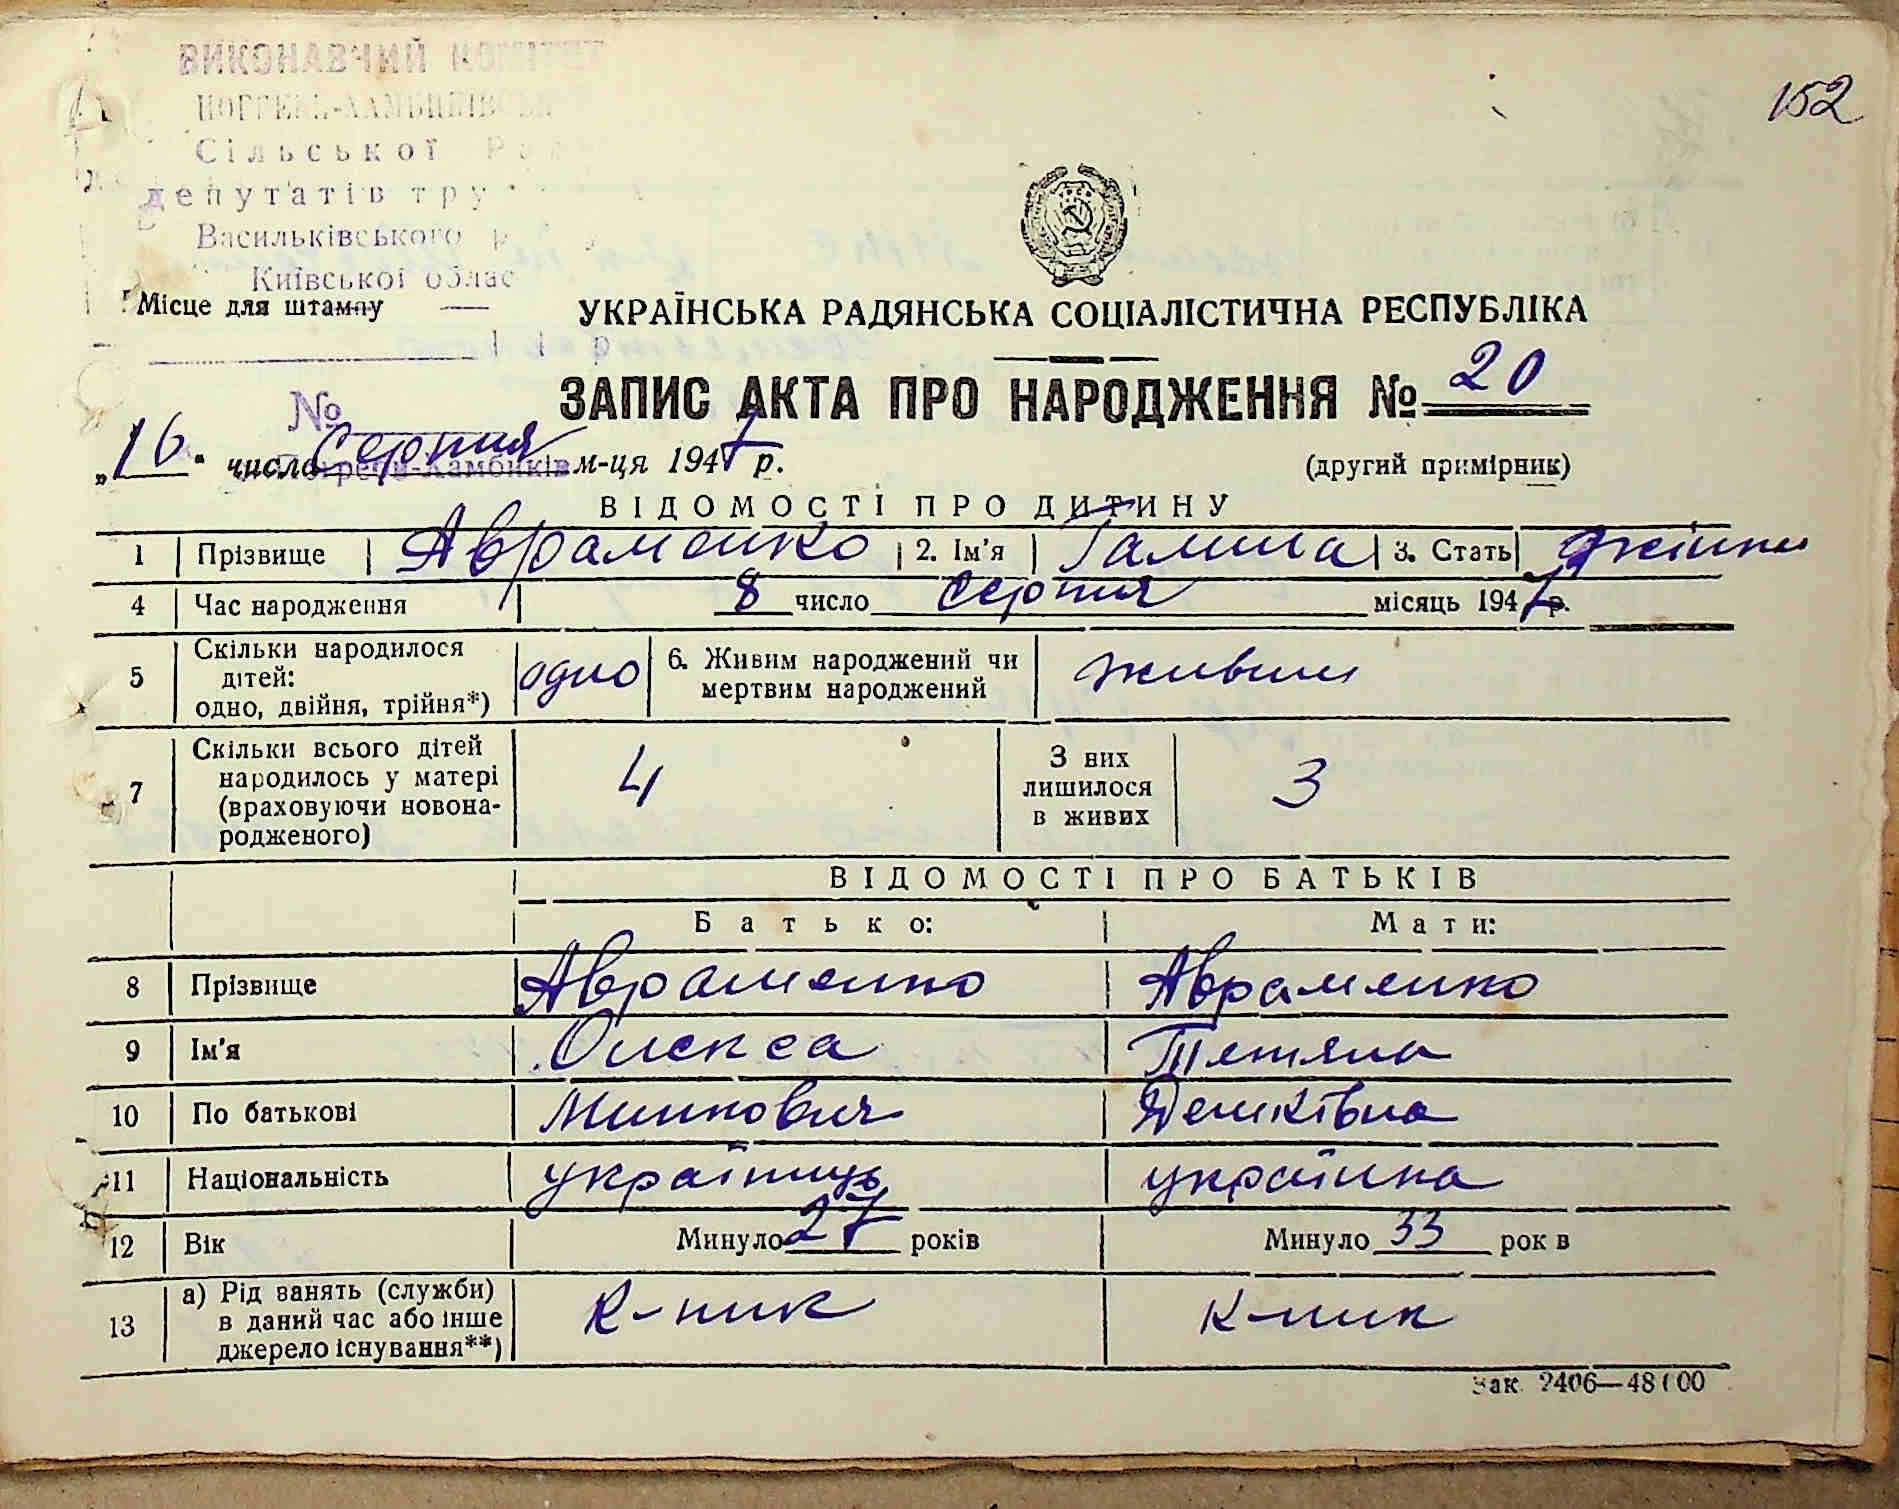 152
ВИКОНАВЧИЙ КОМІТЕТ
Сільської
депутатів тру
Васильківського
Київської облас
Місце для штампу
УКРАЇНСЬКА РАДЯНСЬКА СОЦІАЛІСТИЧНА РЕСПУБЛІКА
ЗАПИС АКТА ПРО НАРОДЖЕННЯ № 20
№
„16“ число Серпня м-ця 1947 р. (другий примірник)
ВІДОМОСТІ ПРО ДИТИНУ
1 Прізвище Авраменко 2. Ім'я Галина 3. Стать
4 Час народження 8 число Серпня місяць 1947 р.
5 Скільки народилося дітей: одно, двійня, трійня*) одно 6. Живим народжений чи мертвим народжений живим
7 Скільки всього дітей народилось у матері (враховуючи новонародженого) 4 З них лишилося в живих 3
ВІДОМОСТІ ПРО БАТЬКІВ
Батько: Мати:
8 Прізвище Авраменко Авраменко
9 Ім'я Олекса Тетяна
10 По батькові
11 Національність українець українка
12 Вік Минуло 27 років Минуло 33 рок в
13 а) Рід занять (служби) в даний час або інше джерело існування**) к-ник к-ник
Зак. 2406—48